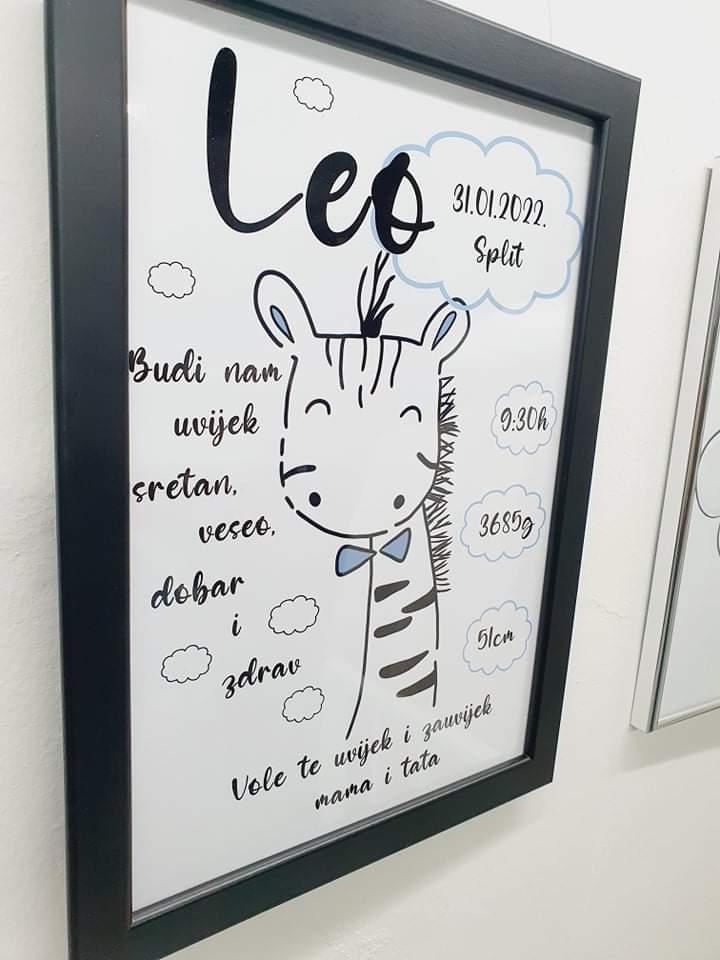 Leo
31.01.2022.
Split
Budi nam
uvijek
sretan,
veseo,
dobar
i
zdrav
9:30h
3685g
51cm
Vole te uvijek i zauvijek
mama i tata